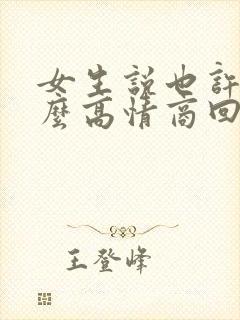 女生説也許
麼高情商回
王登峰